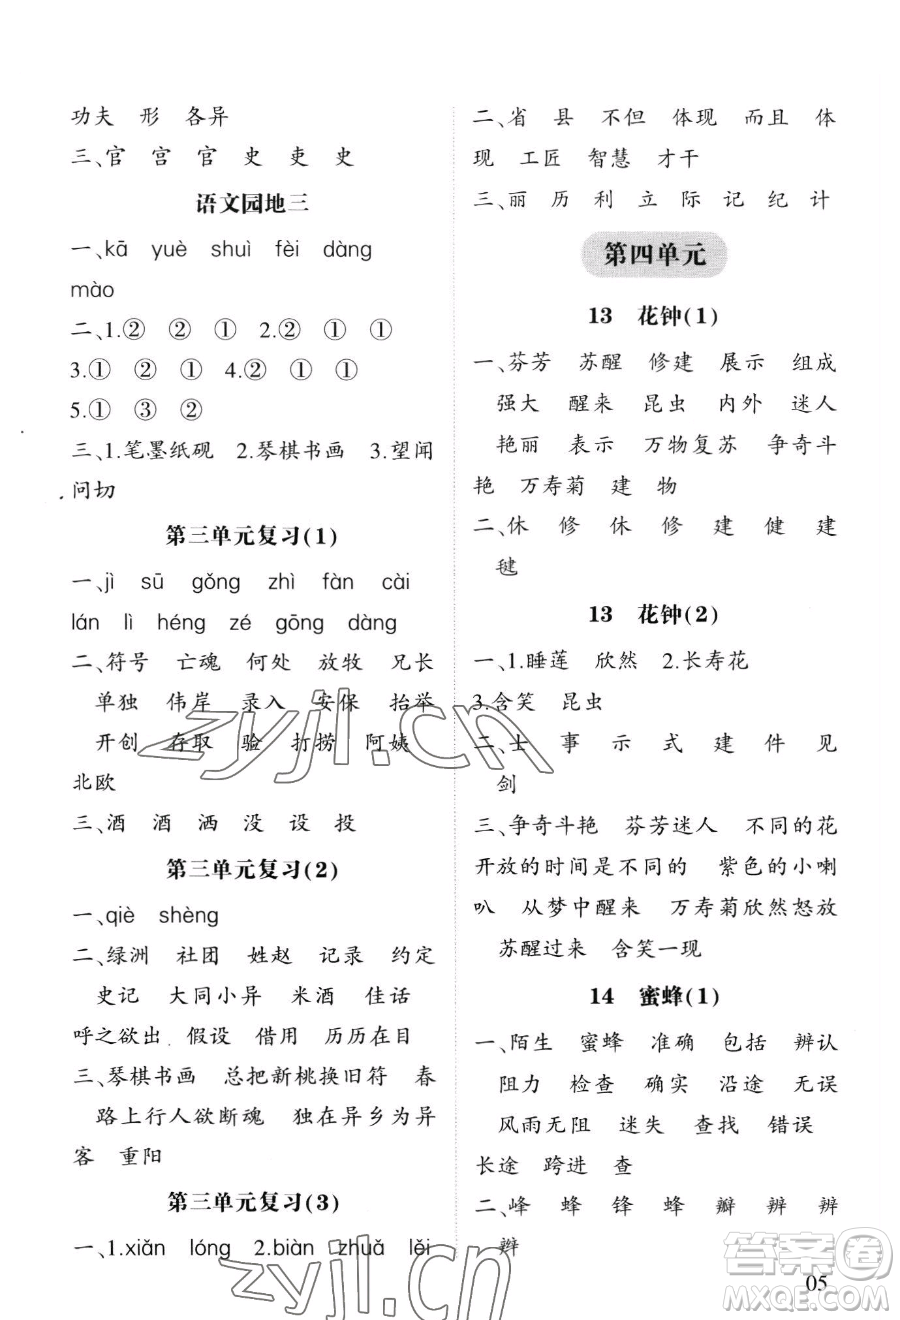 功夫 形 各异
三、官 宫 官 史 吏 史
语文园地三
一、kā yuè shuì fèi dàng
mào
二、1.② ② ① 2.② ① ①
3.① ② ① 4.② ① ①
5.① ③ ②
三、1.笔墨纸砚 2.琴棋书画 3.望闻
问切
第三单元复习(1)
一、jì sū gǒng zhì fàn cài
lán lì héng zé gōng dàng
二、符号 亡魂 何处 放牧 兄长
单独 伟岸 录入 安保 抬举
开创 存取 验 打捞 阿姨
北欧
三、酒 酒 洒 没 设 投
第三单元复习(2)
一、qiè shèng
二、绿洲 社团 姓赵 记录 约定
史记 大同小异 米酒 佳话
呼之欲出 假设 借用 历历在目
三、琴棋书画 总把新桃换旧符 春
路上行人欲断魂 独在异乡为异
客 重阳
第三单元复习(3)
一、1.xiǎn lóng 2.biàn zhuǎ lěi
二、省 县 不但 体现 而且 体
现 工匠 智慧 才干
三、丽 历 利 立 际 记 纪 计
第四单元
13 花钟(1)
一、芬芳 苏醒 修建 展示 组成
强大 醒来 昆虫 内外 迷人
艳丽 表示 万物复苏 争奇斗
艳 万寿菊 建 物
二、休 修 休 修 建 健 建
毽
13 花钟(2)
一、1.睡莲 欣然 2.长寿花
3.含笑 昆虫
二、士 事 示 式 建 件 见
剑
三、争奇斗艳 芬芳迷人 不同的花
开放的时间是不同的 紫色的小喇
叭 从梦中醒来 万寿菊欣然怒放
苏醒过来 含笑一现
14 蜜蜂(1)
一、陌生 蜜蜂 准确 包括 辨认
阻力 检查 确实 沿途 无误
风雨无阻 迷失 查找 错误
长途 跨进 查
二、峰 蜂 锋 蜂 瓣 辨 辨
辫
05
zyjl.cn
zyjl.cn
答案圈
MXQE.COM